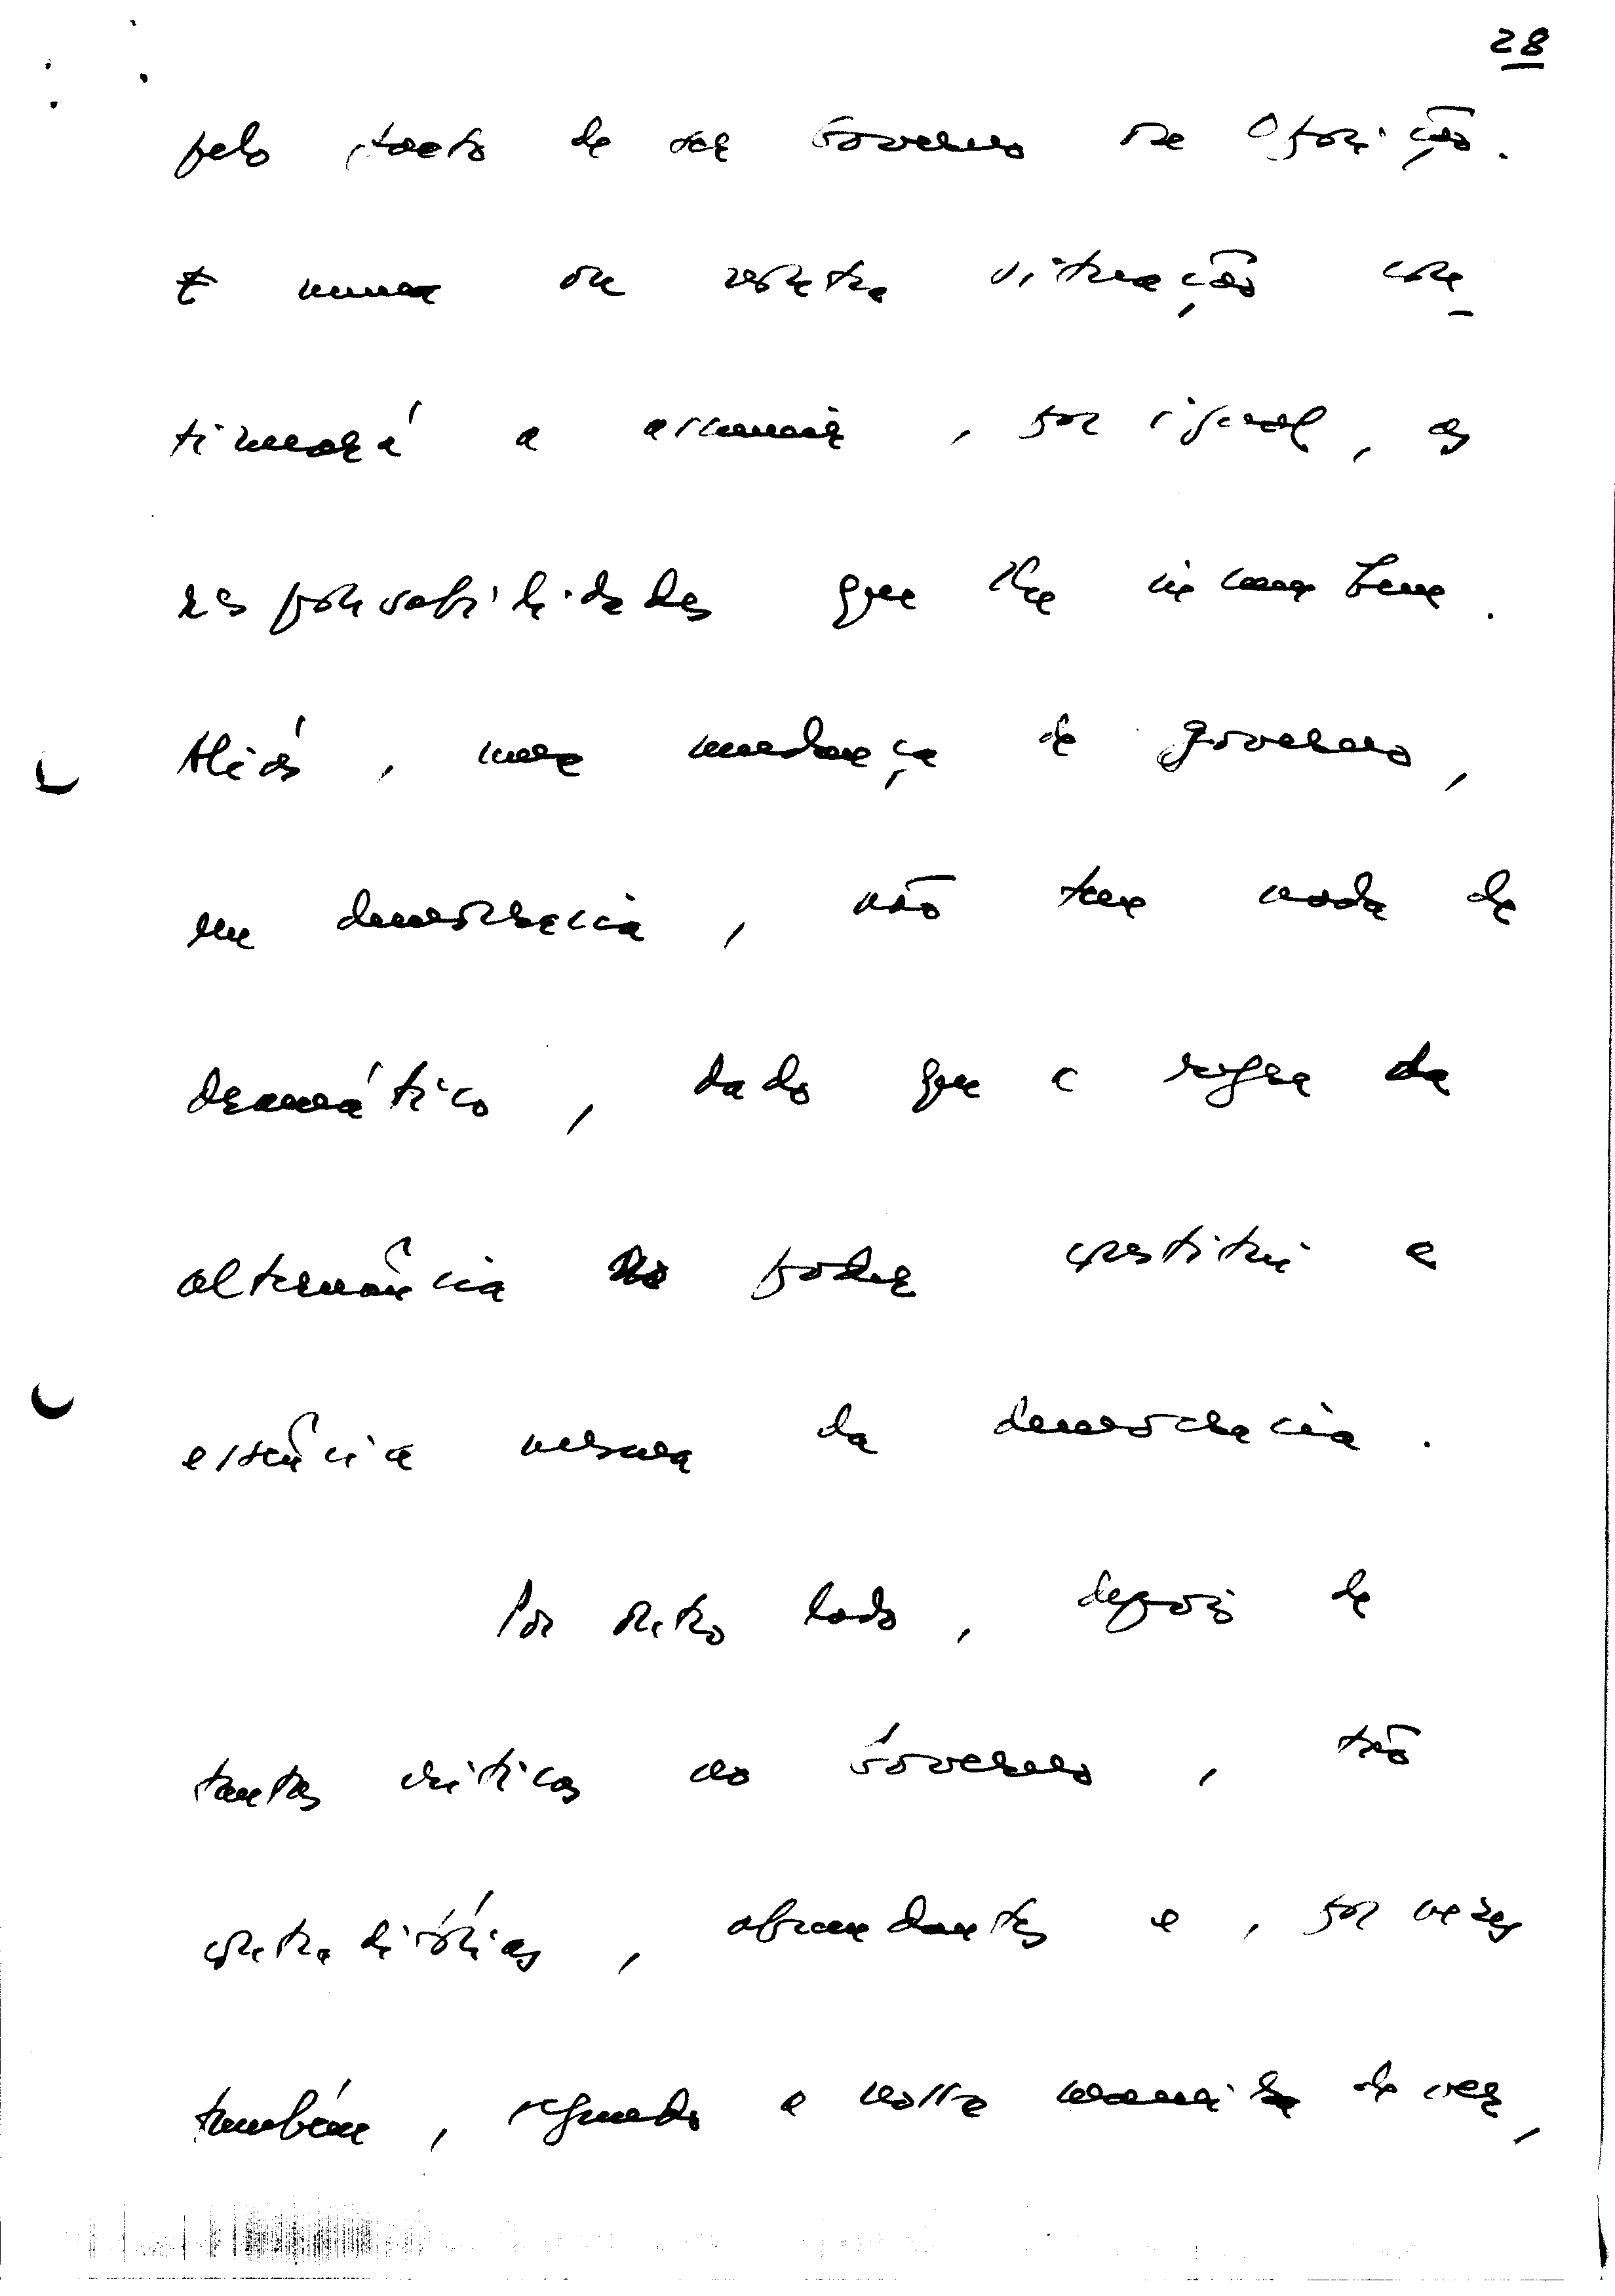 28
pelo facto de ser Governo ou Oposição.
E numa ou noutra situação con-
tinuará a assumir, por igual, as
responsabilidades que lhe incumbem.
Aliás, uma mudança de governo,
em democracia, não tem nada de
dramático, dado que a regra da
alternância no poder constitui a
essência mesma da democracia.
Por outro lado, depois de
tantas críticas ao Governo, tão
contraditórias, abundantes e, por vezes
também, segundo a nossa maneira de ver,